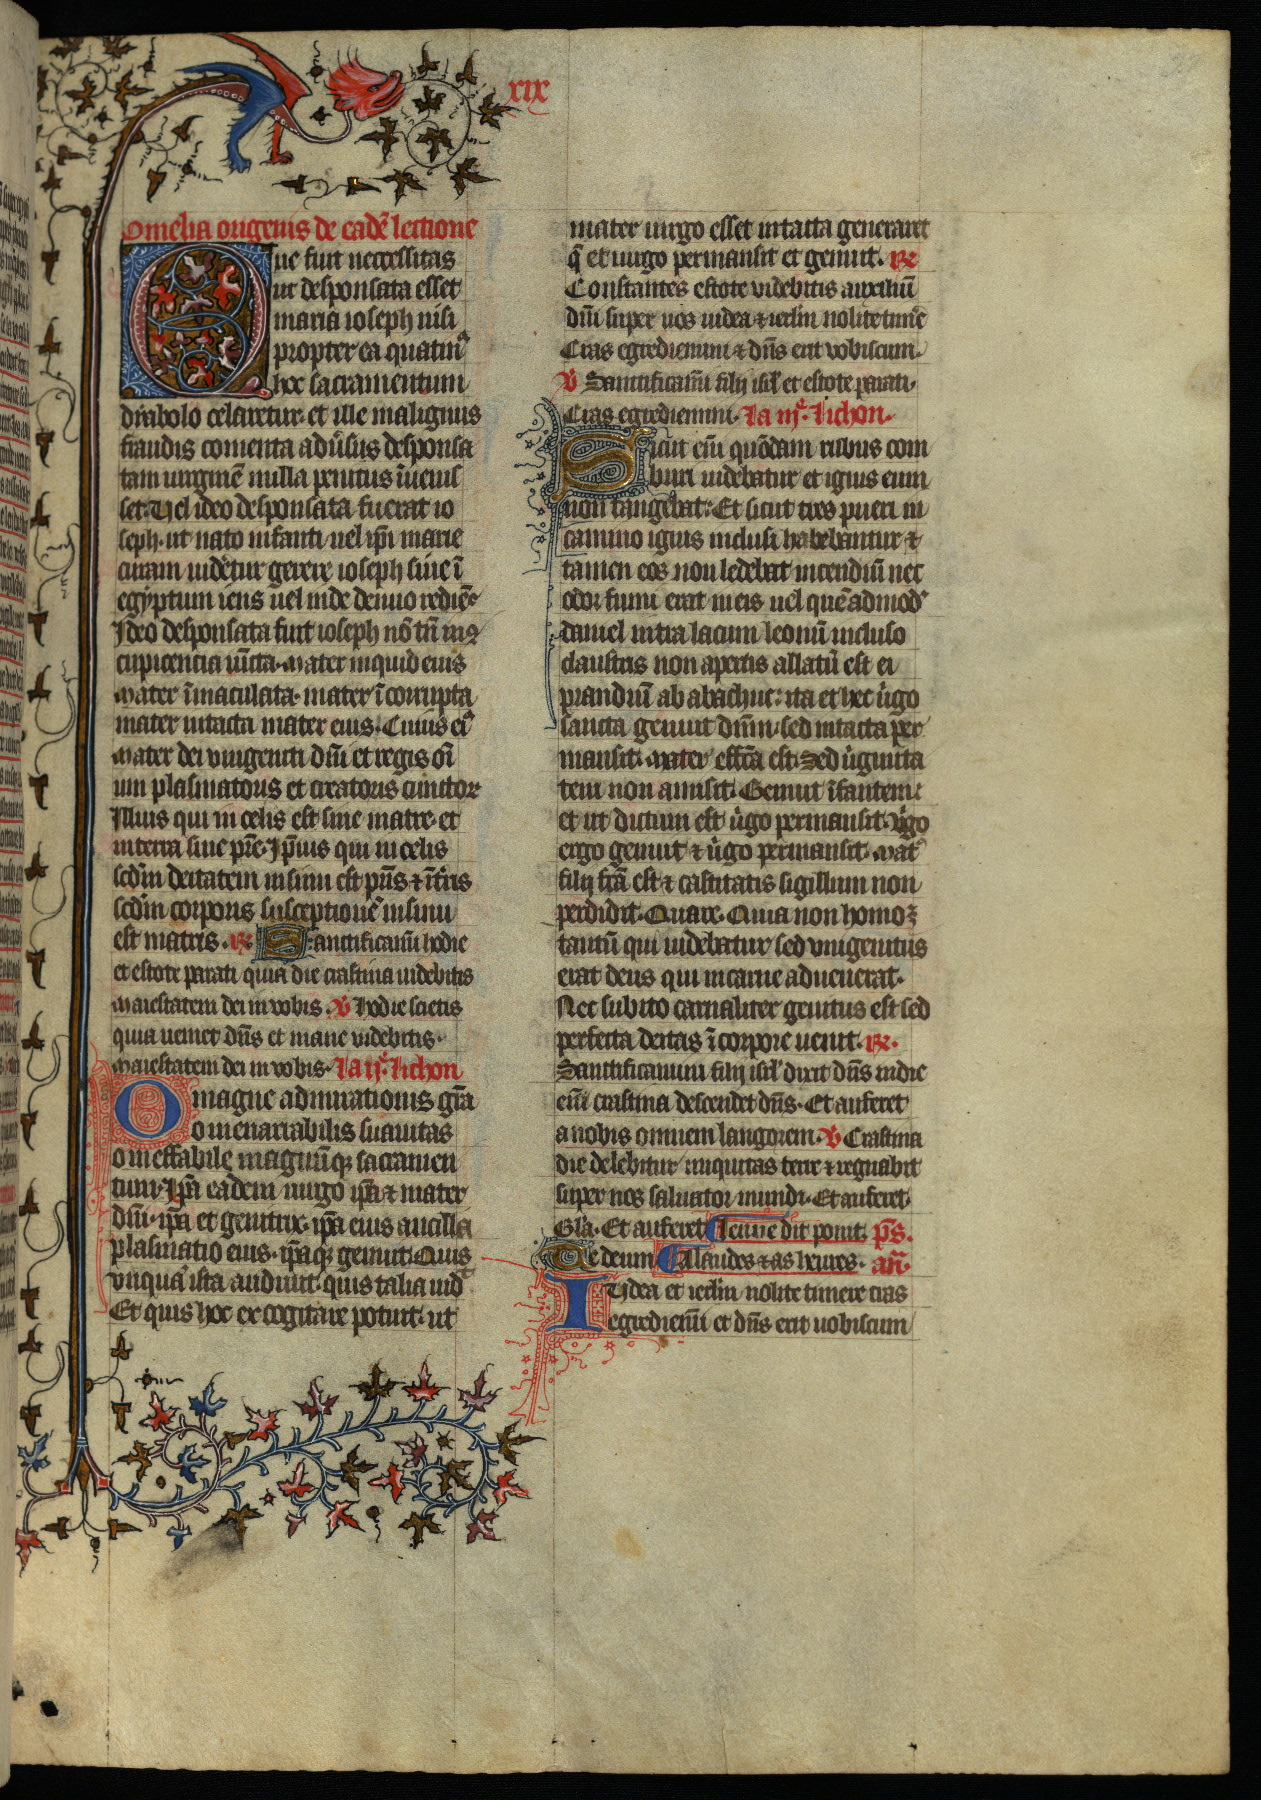 xix
Omelia origenis de eadē lectione
Que fuit necessitas
ut desponsata esset
maria ioseph nisi
propter ea quatinꝰ
hoc sacramentum
dyabolo celaretur et ille malignus
fraudis comenta aduˀsus desponsa
tam uirginē nulla penitus īuenis
set. Uel ideo desponsata fuerat io
seph. ut nato infanti uel ip̄i marie
curam uidˀetur gerere ioseph siue ī
egyptum iens uel inde denuo rediēs
Ideo desponsata fuit ioseph nō tn̄ in 9
cupicencia iūcta. Mater inquid eius
Mater īmaculata. mater īcorrupta
mater intacta mater eius. Cuius eiꝰ
Mater dei unigeniti dn̄i et regis oī
um plasmatoris et creatoris cunctor
Illius qui in celis est sine matre. et
interra sine pr̄e. Ip̄ius qui in celis
scd̄m deitatem in sinu est pr̄is ⁊ ī tr̄is
scd̄m corporis susceptionē in sinu
est matris. R̄ Sanctificam̄i hodie
et estote parati quia die crastina uidebitis
Maiestatem dei in vobis. V̄ Hodie scietis
quia ueniet dn̄s et mane videbitis.
Maiestatem dei in vobis. La ij.ͤ lichon
O magne admirationis gr̄a
o inenarrabilis suauitas
o ineffabile magnūqꝫ sacramen
tum. Ip̄a eadem uirgo ip̄a ⁊ mater
dn̄i. ip̄a et genitrix. ip̄a eius ancilla
plasmatio eius. ip̄aqꝫ genuit. Quis
vnquā ista audiuit. quis talia uidᵗ
Et quis hoc excogitare potuit. ut
mater uirgo esset intacta generaret
q̄ et uirgo permansit et genuit. R̄
Constantes estote videbitis auxiliū
dn̄i super uos iudea ⁊ ierl̄m nolite tim̄e
Cras egrediemini ⁊ dn̄s erit vobiscum.
V̄ Sanctificam̄i filij isr̄l et estote parati.
Cras egrediemini. La iij.ͤ lichon.
Sicut eni quōdam rubus com
buri uidebatur et ignis eum
non tangebat. Et sicut tres pueri in
camino ignis inclusi habebantur ⁊
tamen eos non ledebat incendiū nec
odor fumi erat in eis uel quēadmodꝰ
daniel intra lacum leonū incluso
claustris non apertis allatū est ei
prandiū ab abachuc. ita et hec uˀgo
sancta genuit dn̄m. sed intacta per
mansit. Mater effc̄a est. Sed uˀginita
tem non amisit. Genuit īfantem
et ut dictum est uˀgo permansit. Uˀgo
ergo genuit ⁊ uˀgo permansit. Matˀ
filij fc̄a est ⁊ castitatis sigillum non
perdidit. Quare. Quia non homoꝫ
tantū qui uidebatur sed vnigenitus
erat deus qui in carne aduenerat.
Nec subito carnaliter genitus est sed
perfecta deitas ī corpore uenit. R̄.
Sanctificamini filij isr̄l dixit dn̄s in die
eni crastina descendet dn̄s. Et auferet
a nobis omnem langorem. V̄ Crastina
die delebitur iniquitas terre ⁊ regnabit
super nos saluator mundi. Et auferet.
Gl̄a. Et auferet
Te deum. A laudes ⁊ as heures. an̄.
Iudea et ierl̄m nolite timere cras
egrediemī et dn̄s erit uobiscum